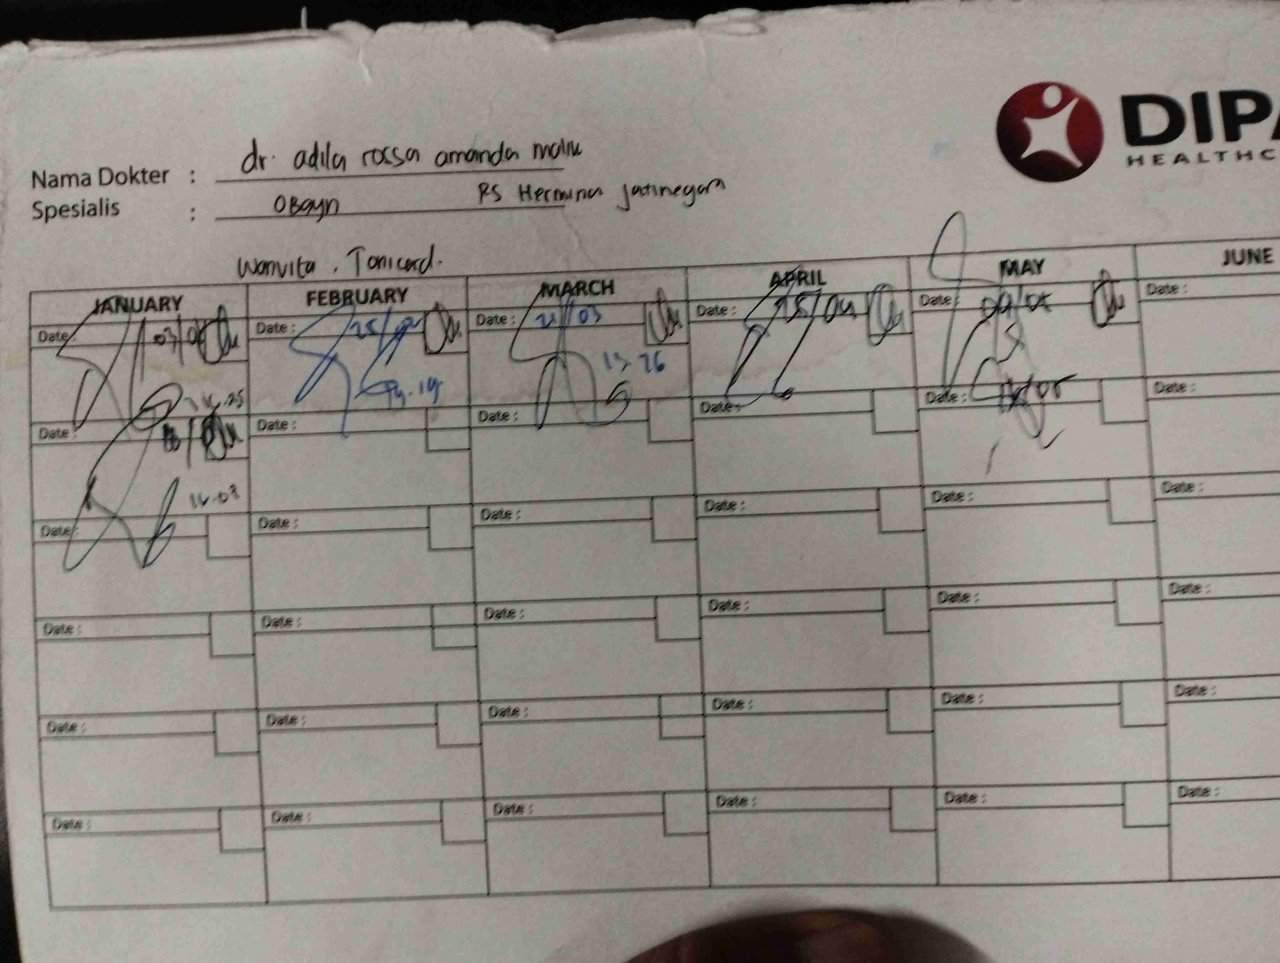 DIPA
HEALTHC
Nama Dokter : dr. adila rossa amanda malik
Spesialis : Obgyn RS Hermina Jatinegara
Wanvita . Tonicard.
JANUARY FEBRUARY MARCH APRIL MAY JUNE
Date: 03/01 Date: 25/02 Date: 21/03 Date: 25/04 Date: 09/05 Date:
14.25 14.19 13.26
Date: Date: Date: Date: Date: Date:
14.03
Date: Date: Date: Date: Date: Date:
Date: Date: Date: Date: Date:
Date: Date: Date: Date: Date: Date:
Date: Date: Date: Date: Date: Date: